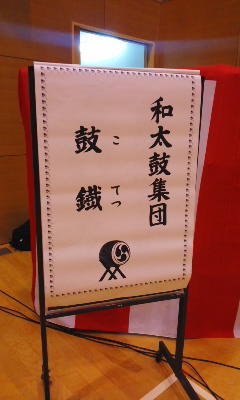 和太鼓集団
鼓鐵
こてつ